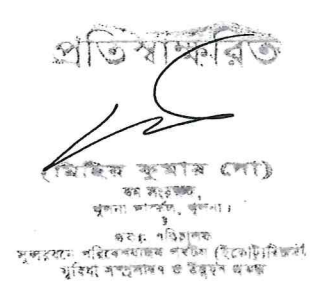 প্রতিস্বাক্ষরিত
(মিহির কুমার দো)
বন সংরক্ষক,
খুলনা সার্কেল, খুলনা।
ও
প্রকল্প পরিচালক
সুন্দরবনে পরিবেশবান্ধব পর্যটন (ইকোট্যুরিজম)
সুবিধা সম্প্রসারণ ও উন্নয়ন প্রকল্প